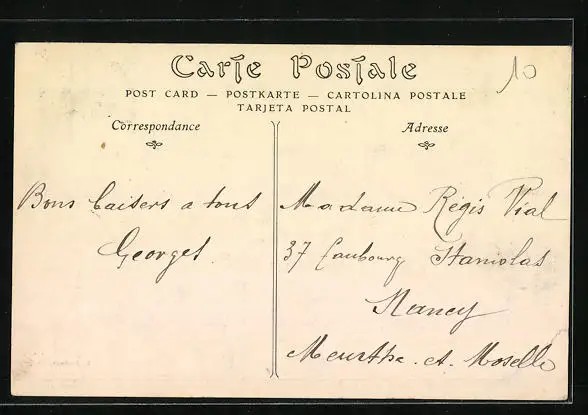 Carte Postale
10
POST CARD — POSTKARTE — CARTOLINA POSTALE
TARJETA POSTAL
Correspondance
Adresse
Bons baisers a tous
Georges
Madame Régis Vial
37 faubourg Stanislas
Nancy
Meurthe. et. Moselle